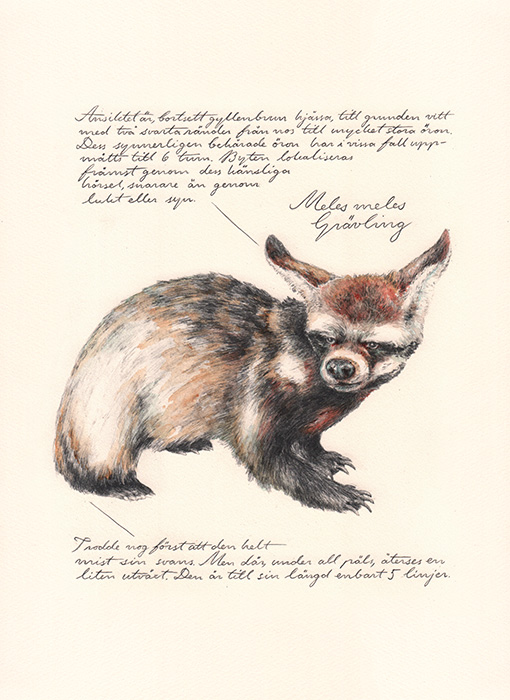 Ansiktet är, bortsett gyllenbrun hjässa, till grunden vitt
med två svarta ränder från nos till mycket stora öron.
Dess synnerligen behårade öron har i vissa fall upp-
mätts till 6 tum. Byten lokaliseras
främst genom dess känsliga
hörsel, snarare än genom
lukt eller syn.
Meles meles
Grävling
Trodde nog först att den helt
mist sin svans. Men där, under all päls, återses en
liten utväxt. Den är till sin längd enbart 5 linjer.